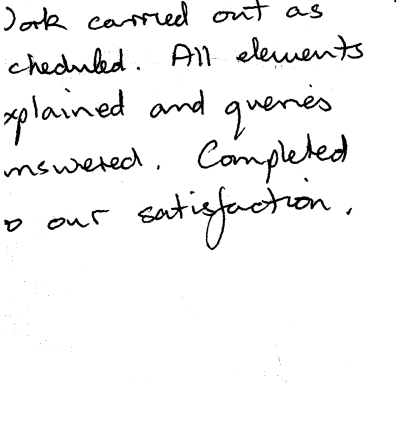 ork carried out as
cheduled. All elements
xplained and queries
nswered. Completed
o our satisfaction.